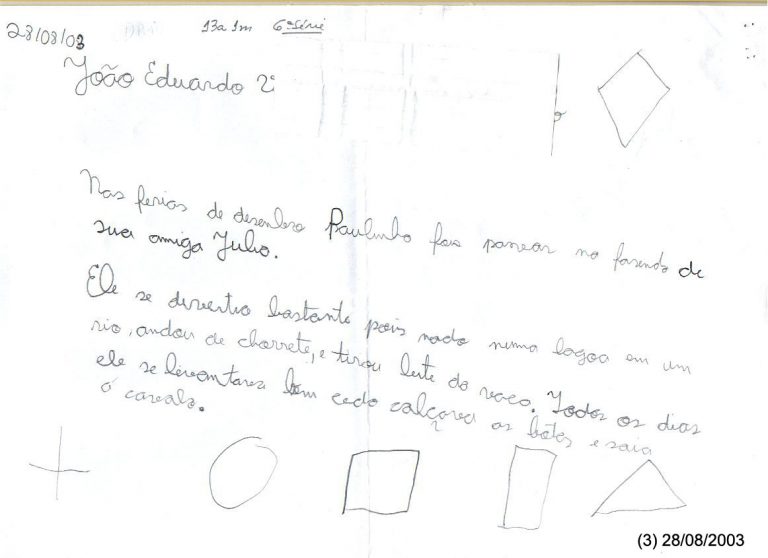 28/08/03
13a 1m 6ª série
João Eduardo 2º
Nas ferias de desenbro Paulinho fos pansear no fazenda de
sua amiga Julio.
Ele se divertio bastante pois nado numa lagoa em um
rio, andou de charrete, e tirou leite do vaca. Todos os dias
ele se levantava bem cedo calçava as botas e saia
o cavalo.
(3) 28/08/2003